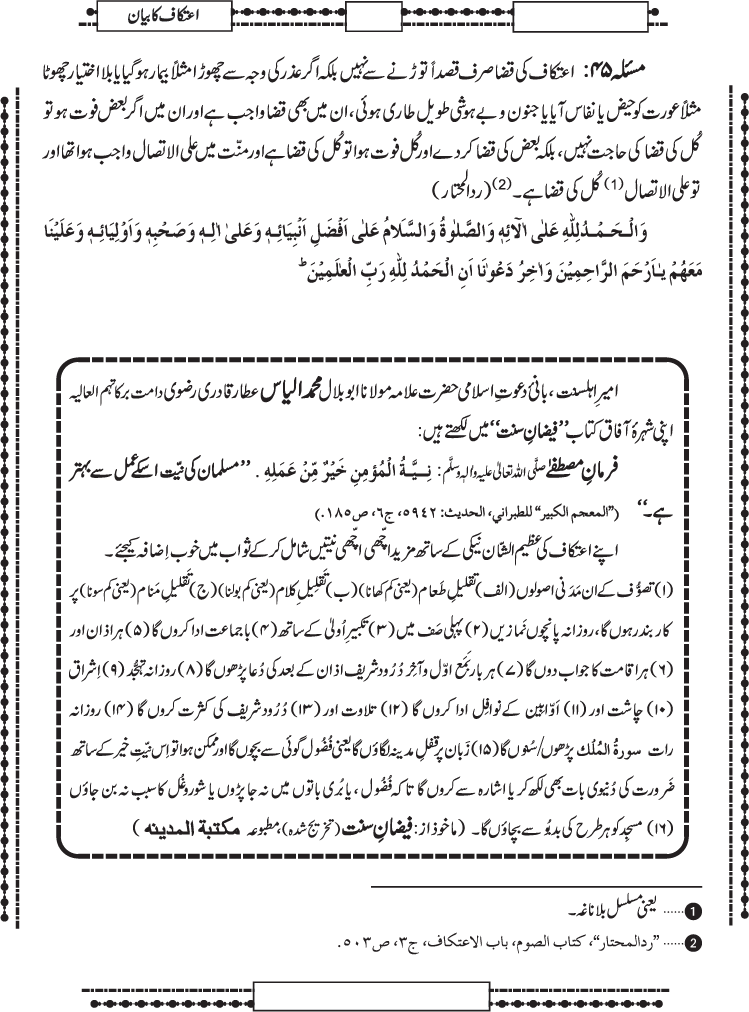 اعتکاف کا بیان
مسئلہ ۴۵: اعتکاف کی قضا صرف قصداً توڑنے سے نہیں بلکہ اگر عذر کی وجہ سے چھوڑا مثلاً بیمار ہو گیا یا بلا اختیار چھوٹا
مثلاً عورت کو حیض یا نفاس آیا یا جنون و بے ہوشی طویل طاری ہوئی، ان میں بھی قضا واجب ہے اور ان میں اگر بعض فوت ہو تو
کُل کی قضا کی حاجت نہیں، بلکہ بعض کی قضا کر دے اور کُل فوت ہوا تو کُل کی قضا ہے اور منّت میں علی الاتصال واجب ہوا تھا اور
تو علی الاتصال (1) کُل کی قضا ہے۔ (2) (ردالمحتار)
وَالْحَمْدُ لِلّٰهِ عَلٰی اٰلَآئِهٖ وَالصَّلٰوةُ وَالسَّلَامُ عَلٰی اَفْضَلِ اَنْبِیَائِهٖ وَعَلٰی اٰلِهٖ وَصَحْبِهٖ وَاَوْلِیَائِهٖ وَعَلَیْنَا
مَعَهُمْ یٰاَرْحَمَ الرَّاحِمِیْنَ وَاٰخِرُ دَعْوٰنَا اَنِ الْحَمْدُ لِلّٰهِ رَبِّ الْعٰلَمِیْنَ ؕ
امیرِ اہلسنت، بانیٔ دعوتِ اسلامی حضرت علامہ مولانا ابو بلال محمد الیاس عطار قادری رضوی دامت برکاتہم العالیہ
اپنی شہرۂ آفاق کتاب ’’فیضانِ سنت‘‘ میں لکھتے ہیں:
فرمانِ مصطفٰے صلَّی اللہ تعالیٰ علیہ والہٖ وسلَّم: نِیَّةُ الْمُؤْمِنِ خَیْرٌ مِّنْ عَمَلِهٖ . ’’مسلمان کی نیّت اسکے عمل سے بہتر
ہے۔‘‘ (’’المعجم الکبیر‘‘ للطبراني، الحدیث: ۵۹۴۲، ج۶، ص۱۸۵.)
اپنے اعتکاف کی عظیم الشّان نیکی کے ساتھ مزید اچھّی اچھّی نیّتیں شامل کر کے ثواب میں خوب اِضافہ کیجئے۔
(۱) تصوُّف کے ان مَدَنی اصولوں (الف) تقلیلِ طَعام (یعنی کم کھانا) (ب) تَقلیلِ کلام (یعنی کم بولنا) (ج) تَقلیلِ مَنام (یعنی کم سونا) پر
کار بند رہوں گا، روزانہ پانچوں نَمازیں (۲) پہلی صَف میں (۳) تکبیرِ اُولیٰ کے ساتھ (۴) با جماعت ادا کروں گا (۵) ہر اذان اور
(۶) ہر اقامت کا جواب دوں گا (۷) ہر بار بَمَع اوّل و آخِر دُرُود شریف اذان کے بعد کی دُعا پڑھوں گا (۸) روزانہ تہجُّد (۹) اِشراق
(۱۰) چاشت اور (۱۱) اَوّابِین کے نوافِل ادا کروں گا (۱۲) تلاوت اور (۱۳) دُرُود شریف کی کثرت کروں گا (۱۴) روزانہ
رات سورۃُ المُلك پڑھوں/سنُوں گا (۱۵) زَبان پر قفلِ مدینہ لگاؤں گا یعنی فُضُول گوئی سے بچوں گا اور ممکن ہوا تو اس نیّتِ خیر کے ساتھ
ضَرورت کی دُنیوی بات بھی لکھ کر یا اشارہ سے کروں گا تا کہ فُضُول، یا بُری باتوں میں نہ جا پڑوں یا شور وغُل کا سبب نہ بن جاؤں
(۱۶) مسجِد کو ہر طرح کی بدبُو سے بچاؤں گا۔ (ماخوذ از: فیضانِ سنت (تخریج شدہ)، مطبوعہ مکتبة المدینه)
1 ...... یعنی مسلسل بلا ناغہ۔
2 ...... ’’ردالمحتار‘‘، کتاب الصوم، باب الاعتکاف، ج۳، ص۵۰۳.